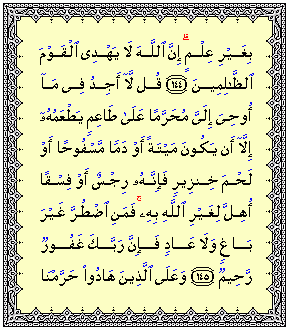 بِغَيْرِ عِلْمٍ ۗ إِنَّ ٱللَّهَ لَا يَهْدِى ٱلْقَوْمَ
ٱلظَّـٰلِمِينَ ﴿١٤٤﴾ قُل لَّآ أَجِدُ فِى مَآ
أُوحِىَ إِلَىَّ مُحَرَّمًا عَلَىٰ طَاعِمٍ يَطْعَمُهُۥٓ
إِلَّآ أَن يَكُونَ مَيْتَةً أَوْ دَمًا مَّسْفُوحًا أَوْ
لَحْمَ خِنزِيرٍ فَإِنَّهُۥ رِجْسٌ أَوْ فِسْقًا
أُهِلَّ لِغَيْرِ ٱللَّهِ بِهِۦ ۚ فَمَنِ ٱضْطُرَّ غَيْرَ
بَاغٍ وَلَا عَادٍ فَإِنَّ رَبَّكَ غَفُورٌ
رَّحِيمٌ ﴿١٤٥﴾ وَعَلَى ٱلَّذِينَ هَادُوا۟ حَرَّمْنَا